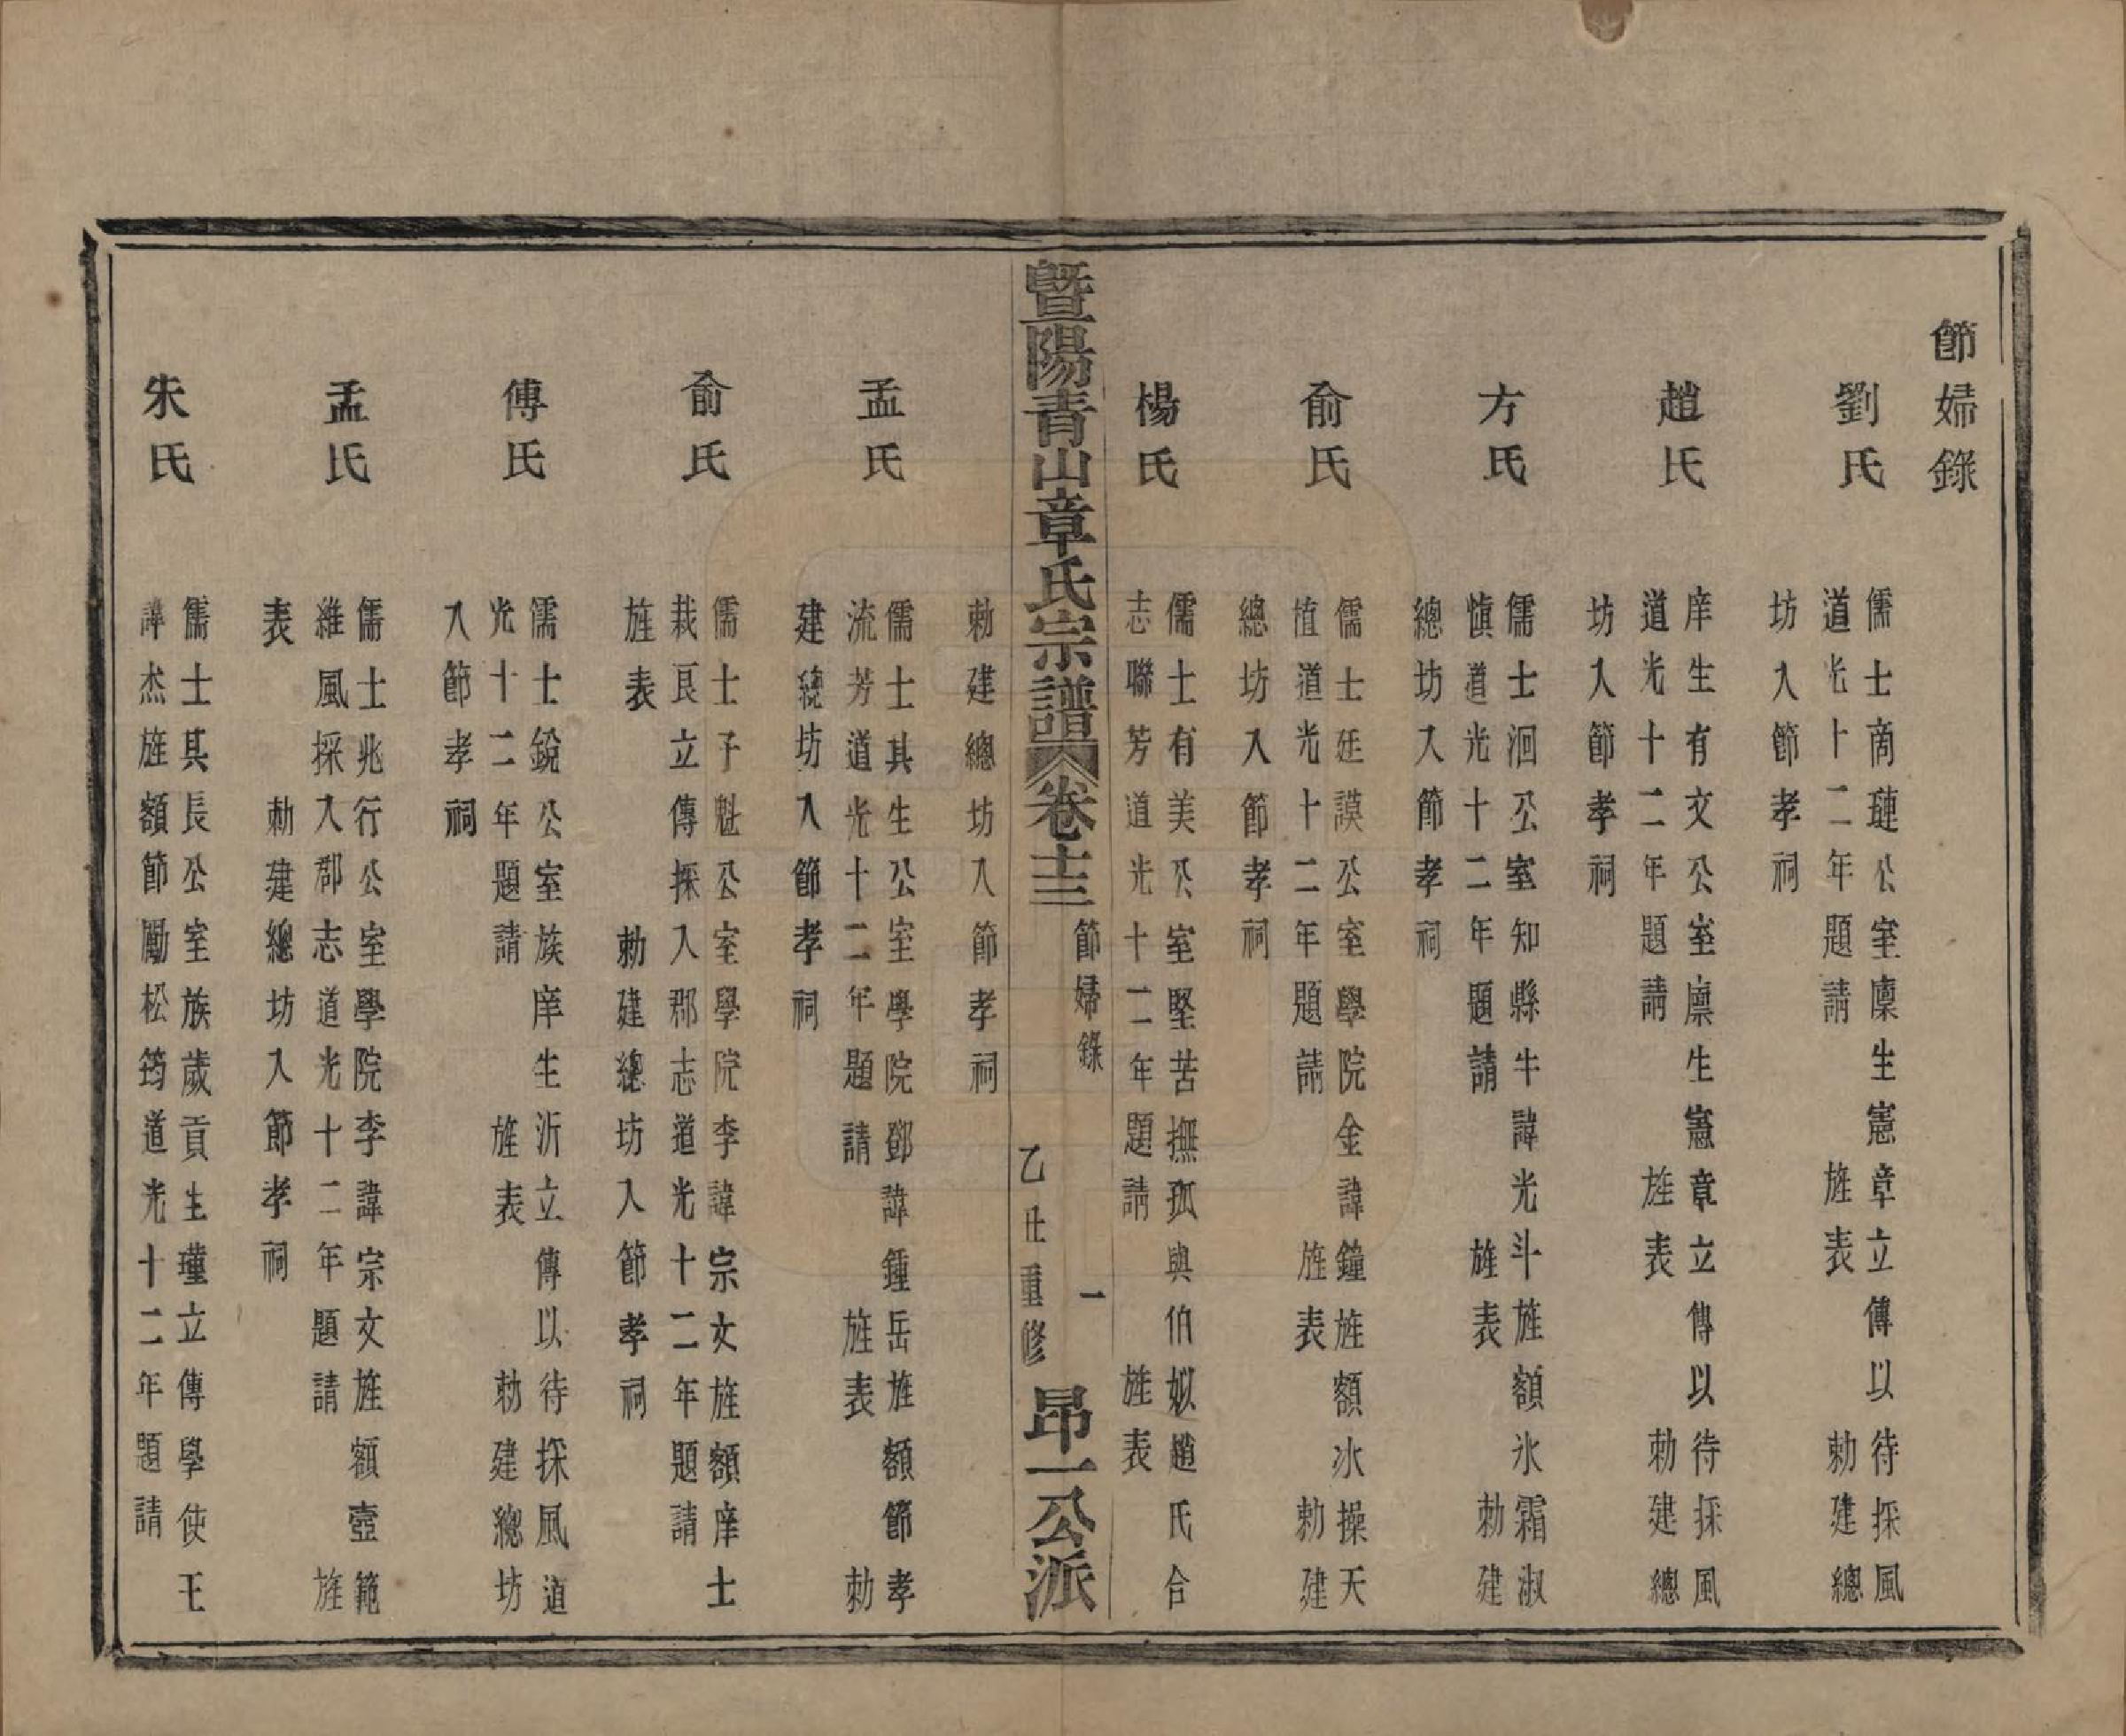 節婦錄
劉氏
儒士商璉公室廩生憲章立傳以待採風
道光十二年題請　旌表　勅建總
坊入節孝祠
趙氏
庠生有文公室廩生憲章立傳以待採風
道光十二年題請　旌表　勅建總
坊入節孝祠
方氏
儒士洄公室知縣牛諱光斗旌額氷霜淑
慎道光十二年題請　旌表　勅建
總坊入節孝祠
俞氏
儒士廷謨公室學院金諱鐘旌額冰操天
植道光十二年題請　旌表　勅建
總坊入節孝祠
楊氏
儒士有美公室堅苦撫孤與伯姒趙氏合
志聯芳道光十二年題請　旌表
勅建總坊入節孝祠
暨陽青山章氏宗譜　卷十三　節婦錄　一　乙丑重修　昂一公派
孟氏
儒士其生公室學院鄧諱鍾岳旌額節孝
流芳道光十二年題請　旌表　勅
建總坊入節孝祠
俞氏
儒士子魁公室學院李諱宗文旌額庠士
栽艮立傳採入郡志道光十二年題請
旌表　勅建總坊入節孝祠
傅氏
儒士銳公室族庠生沂立傳以待採風道
光十二年題請　旌表　勅建總坊
入節孝祠
孟氏
儒士兆行公室學院李諱宗文旌額壼範
維風採入郡志道光十二年題請　旌
表　勅建總坊入節孝祠
朱氏
儒士其長公室族歲貢生瑾立傳學使王
諱杰旌額節勵松筠道光十二年題請